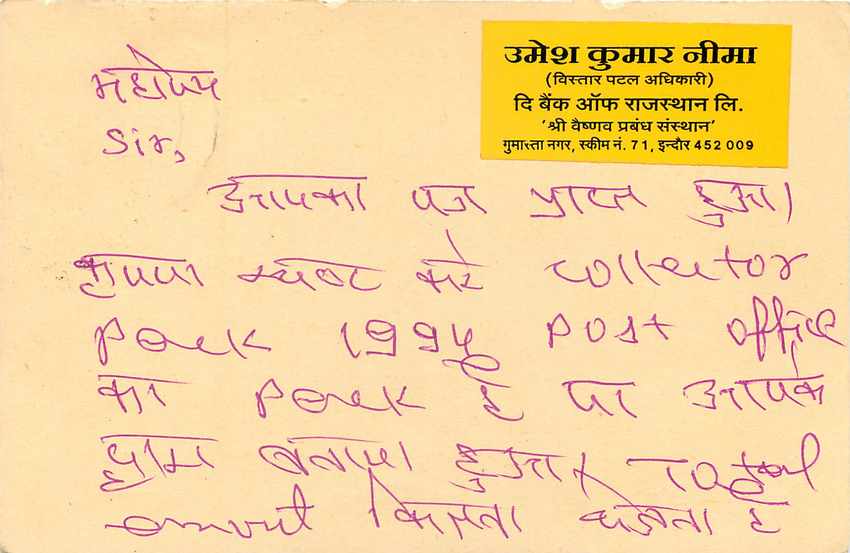 उमेश कुमार नीमा
(विस्तार पटल अधिकारी)
दि बैंक ऑफ राजस्थान लि.
'श्री वैष्णव प्रबंध संस्थान'
गुमाश्ता नगर, स्कीम नं. 71, इन्दौर 452 009
महोदय
Sir,
आपका पत्र प्राप्त हुआ।
कृपया स्पष्ट करे collector
Pack 1994 Post office
का Pack है या आपके
द्वारा बनाया हुआ। Total
कितना भेजना है